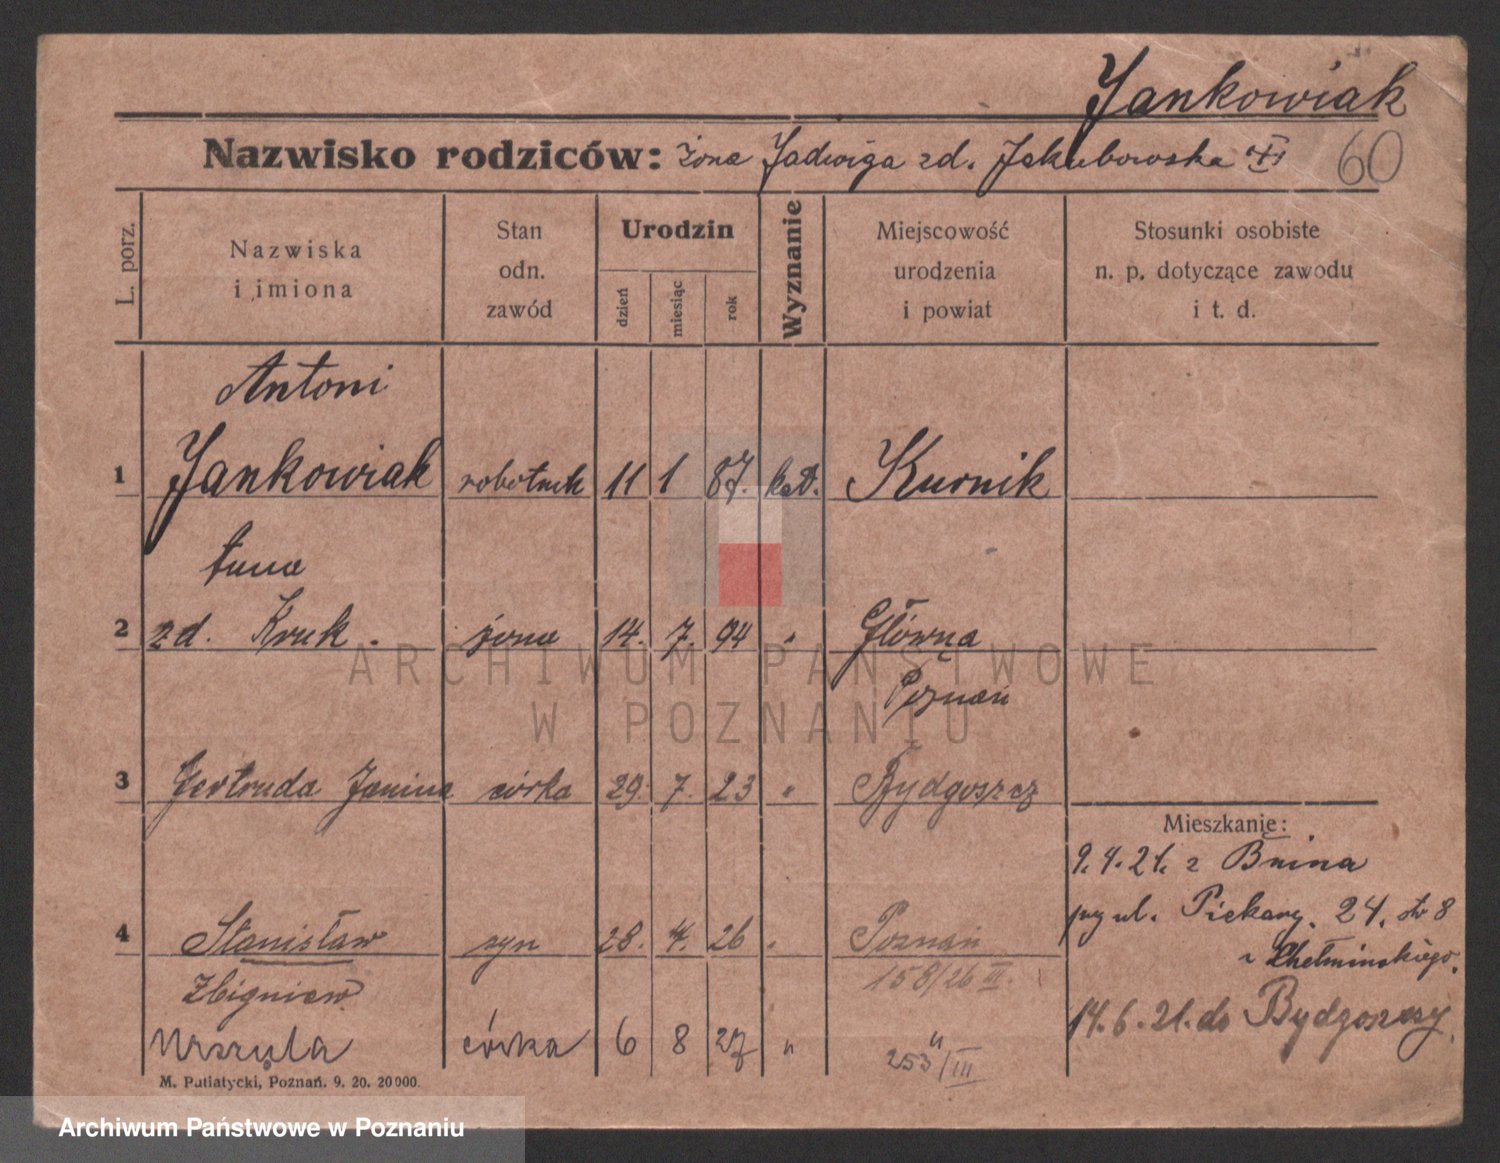 Jankowiak
Nazwisko rodziców: żona Jadwiga zd. Jakubowska
60
L. porz.
Nazwiska i imiona
Stan odn. zawód
Urodzin
dzień
miesiąc
rok
Wyznanie
Miejscowość urodzenia i powiat
Stosunki osobiste n. p. dotyczące zawodu i t. d.
Antoni
1 Jankowiak robotnik 11 1 87. kat. Kurnik
2 zd. Kruk. żona 14. 7. 94 " Główna
Poznań
3 Gertruda Janina córka 29. 7. 23 " Bydgoszcz
Mieszkanie:
9.4.21. z Bnina
przy ul. Piekary. 24. str 8
u Chełmińskiego.
14.6.21. do Bydgoszczy.
4 Stanisław syn 28. 4. 26 " Poznań
Zbigniew 158/26 III.
Urszula córka 6 8 27 " "
253/III
M. Putiatycki, Poznań. 9. 20. 20000.
ARCHIWUM PAŃSTWOWE
W POZNANIU
Archiwum Państwowe w Poznaniu